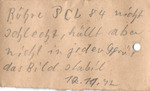 Röhre PCL 84 nicht
schlecht, hält aber
nicht in jedem Gerät
das Bild stabil
12.10.72